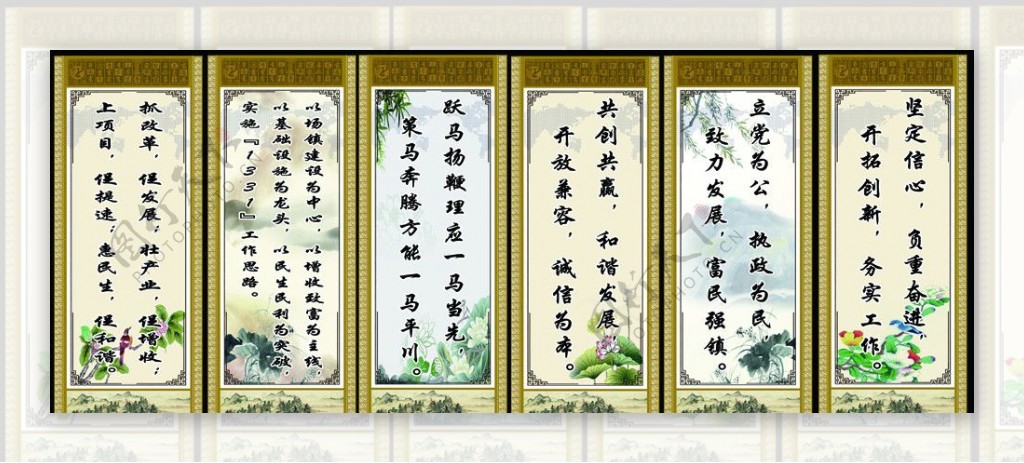 坚定信心，负重奋进，
开拓创新，务实工作。
立党为公，执政为民，
致力发展，富民强镇。
共创共赢，和谐发展，
开放兼容，诚信为本。
跃马扬鞭理应一马当先，
策马奔腾方能一马平川。
以场镇建设为中心，以增收致富为主线，
以基础设施为龙头，以民生民利为突破，
实施『1331』工作思路。
抓改革，促发展；壮产业，促增收；
上项目，促提速；惠民生，促和谐。